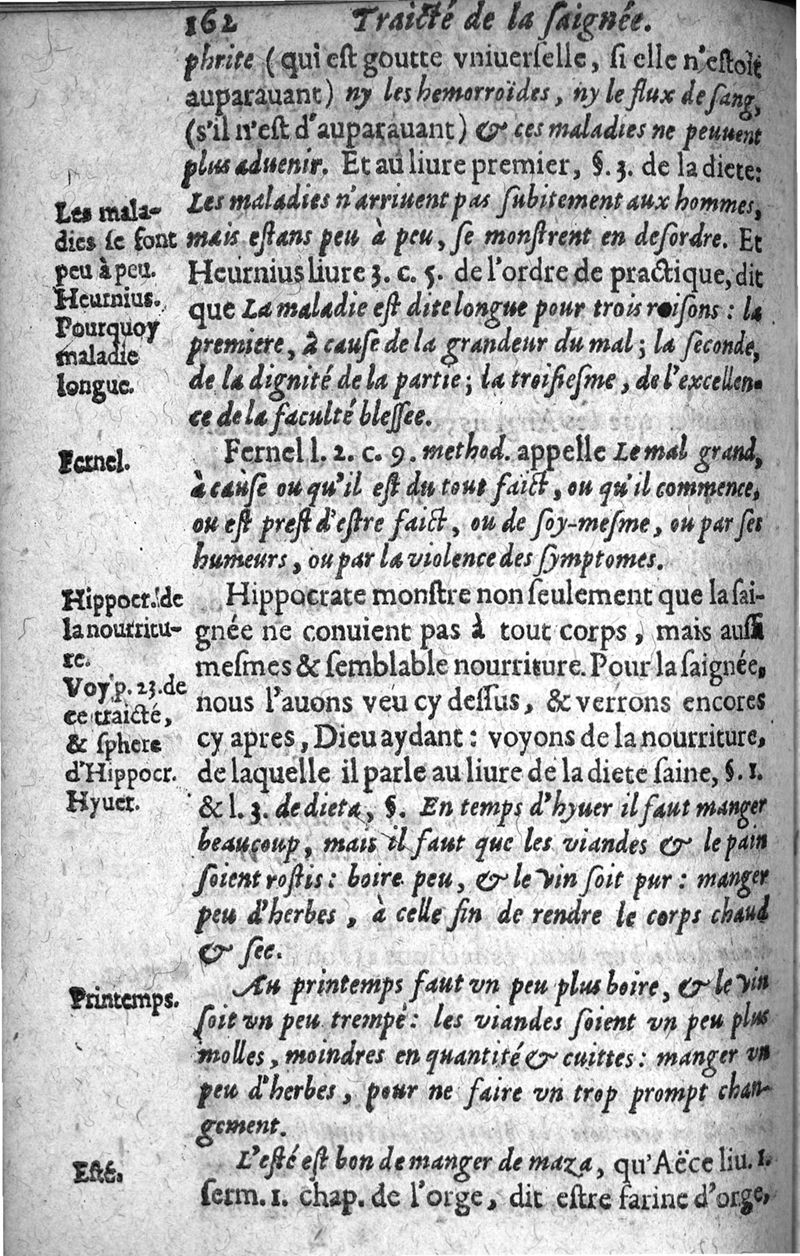 162 Traicté de la saignée.
phrite (qui est goutte vniuerselle, si elle n'estoit
auparauant) ny les hemorroïdes, ny le flux de sang,
(s'il n'est d'auparauant) & ces maladies ne peuuent
plus aduenir. Et au liure premier, §. 3. de la diete:
Les maladies n'arriuent pas subitement aux hommes,
mais estans peu à peu, se monstrent en desordre. Et
Heurnius liure 3. c. 5. de l'ordre de practique, dit
que La maladie est dite longue pour trois raisons: la
premiere, à cause de la grandeur du mal; la seconde,
de la dignité de la partie; la troisiesme, de l'excellen-
ce de la faculté blessee.
Les mala-
dies se font
peu à peu.
Heurnius.
Pourquoy
maladie
longue.
Fernel l. 2. c. 9. method. appelle Le mal grand,
à cause ou qu'il est du tout faict, ou qu'il commence,
ou est prest d'estre faict, ou de soy-mesme, ou par ses
humeurs, ou par la violence des symptomes.
Fernel.
Hippocrate monstre non seulement que la sai-
gnée ne conuient pas à tout corps, mais aussi
mesmes & semblable nourriture. Pour la saignée,
nous l'auons veu cy dessus, & verrons encores
cy apres, Dieu aydant: voyons de la nourriture,
de laquelle il parle au liure de la diete saine, §. 1.
& l. 3. de dieta, §. En temps d'hyuer il faut manger
beaucoup, mais il faut que les viandes & le pain
soient rostis: boire peu, & le vin soit pur: manger
peu d'herbes, à celle fin de rendre le corps chaud
& sec.
Hippocr. de
la nourritu-
re.
Voy p. 23. de
ce traicté,
& sphere
d'Hippocr.
Hyuer.
Au printemps faut vn peu plus boire, & le vin
soit vn peu trempé: les viandes soient vn peu plus
molles, moindres en quantité & cuittes: manger vn
peu d'herbes, pour ne faire vn trop prompt chan-
gement.
Printemps.
L'esté est bon de manger de maza, qu'Aëce liu. 1.
serm. 1. chap. de l'orge, dit estre farine d'orge,
Esté.